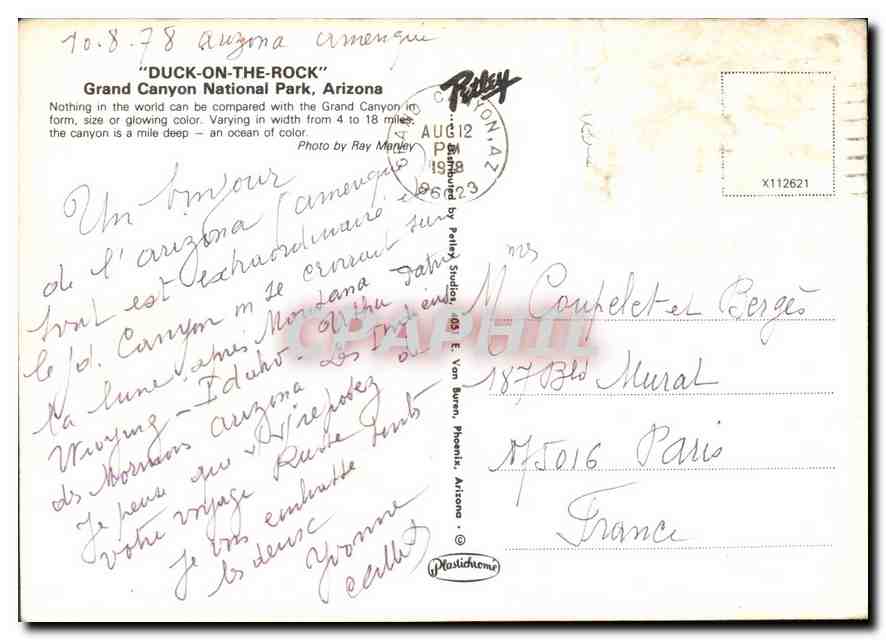 10.8.78 arizona amerique
"DUCK-ON-THE-ROCK"
Grand Canyon National Park, Arizona
Nothing in the world can be compared with the Grand Canyon in
form, size or glowing color. Varying in width from 4 to 18 miles,
the canyon is a mile deep — an ocean of color.
Photo by Ray Manley
Petley
GRAND CANYON, AZ
AUG 12
PM
1978
86023
X112621
Un bonjour
de l'arizona (amerique)
tout est extraordinaire
le Canyon se croirait sur
la lune après Montana
Wioying - Idaho - Utha
des Mormons arizona Les Indiens
Je pense que reposez
votre voyage Russie
Je vous embrasse
les deux
Yvonne
Distributed by Petley Studios, 4051 E. Van Buren, Phoenix, Arizona. ©
Plastichrome
mrs
M Coupelet et Bergès
187 Bld Murat
75016 Paris
France
CPAPHIL